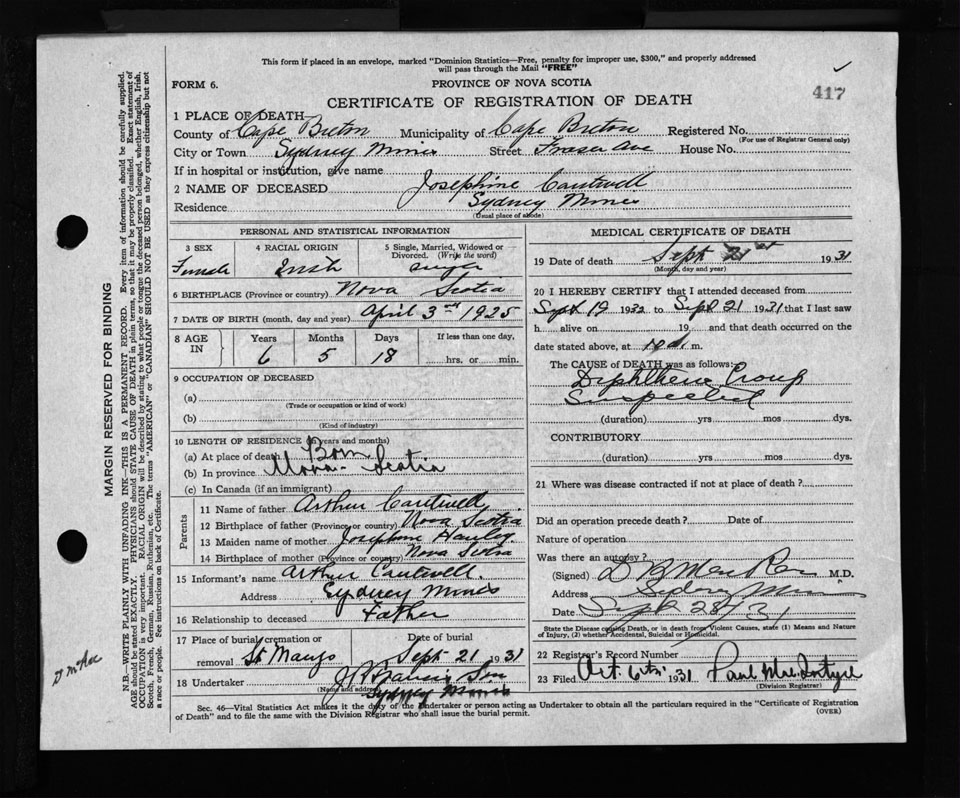 This form if placed in an envelope, marked "Dominion Statistics—Free, penalty for improper use, $300," and properly addressed
will pass through the Mail "FREE"
417
FORM 6.
PROVINCE OF NOVA SCOTIA
CERTIFICATE OF REGISTRATION OF DEATH
1 PLACE OF DEATH—
County of Cape Breton Municipality of Cape Breton Registered No.
(For use of Registrar General only)
City or Town Sydney Mines Street Fraser Ave House No.
If in hospital or institution, give name
2 NAME OF DECEASED Josephine Cantwell
Residence Sydney Mines
(Usual place of abode)
PERSONAL AND STATISTICAL INFORMATION
3 SEX 4 RACIAL ORIGIN 5 Single, Married, Widowed or Divorced. (Write the word)
Female Irish single
6 BIRTHPLACE (Province or country) Nova Scotia
7 DATE OF BIRTH (month, day and year) April 3rd 1925
8 AGE IN Years Months Days If less than one day,
6 5 18 hrs. or min.
9 OCCUPATION OF DECEASED
(a)
(Trade or occupation or kind of work)
(b)
(Kind of industry)
10 LENGTH OF RESIDENCE (in years and months)
(a) At place of death Born
(b) In province Nova Scotia
(c) In Canada (if an immigrant)
Parents
11 Name of father Arthur Cantwell
12 Birthplace of father (Province or country) Nova Scotia
13 Maiden name of mother Josephine Hawley
14 Birthplace of mother (Province or country) Nova Scotia
15 Informant's name Arthur Cantwell.
Address Sydney Mines
16 Relationship to deceased Father
17 Place of burial, cremation or removal St Marys Date of burial Sept 21 1931
18 Undertaker
(Name and address) Sydney Mines
MEDICAL CERTIFICATE OF DEATH
19 Date of death Sept 21st 1931
(Month, day and year)
20 I HEREBY CERTIFY that I attended deceased from
Sept 19 1932 to Sept 21 1931 that I last saw
h alive on 19 and that death occurred on
date stated above, at m.
The CAUSE of DEATH was as follows:
Diphtheric Croup
Suspected
(duration) yrs mos dys.
CONTRIBUTORY
(duration) yrs mos dys.
21 Where was disease contracted if not at place of death?
Did an operation precede death? Date of
Nature of operation
Was there an autopsy?
(Signed) M.D.
Address Sydney Mines
Date Sept 28/31
State the Disease causing Death, or in death from Violent Causes, state (1) Means and
Nature of Injury, (2) whether Accidental, Suicidal or Homicidal.
22 Registrar's Record Number
23 Filed Oct. 6th 1931 Paul
(Division Registrar)
Sec. 46—Vital Statistics Act makes it the duty of the Undertaker or person acting as Undertaker to obtain all the particulars required in the "Certificate of Registration
of Death" and to file the same with the Division Registrar who shall issue the burial permit.
(OVER)
MARGIN RESERVED FOR BINDING
N.B.—WRITE PLAINLY WITH UNFADING INK—THIS IS A PERMANENT RECORD. Every item of information should be carefully supplied.
AGE should be stated EXACTLY. PHYSICIANS should STATE CAUSE OF DEATH in plain terms, so that it may be properly classified. Exact statement of
OCCUPATION is very important. RACIAL ORIGIN will be described by stating to what people or tongue the deceased person belonged, whether English, Irish,
Scotch, French, German, Russian, Ruthenian, etc. The terms "AMERICAN" or "CANADIAN" SHOULD NOT BE USED as they express citizenship but not
a race or people. See instructions on back of Certificate.